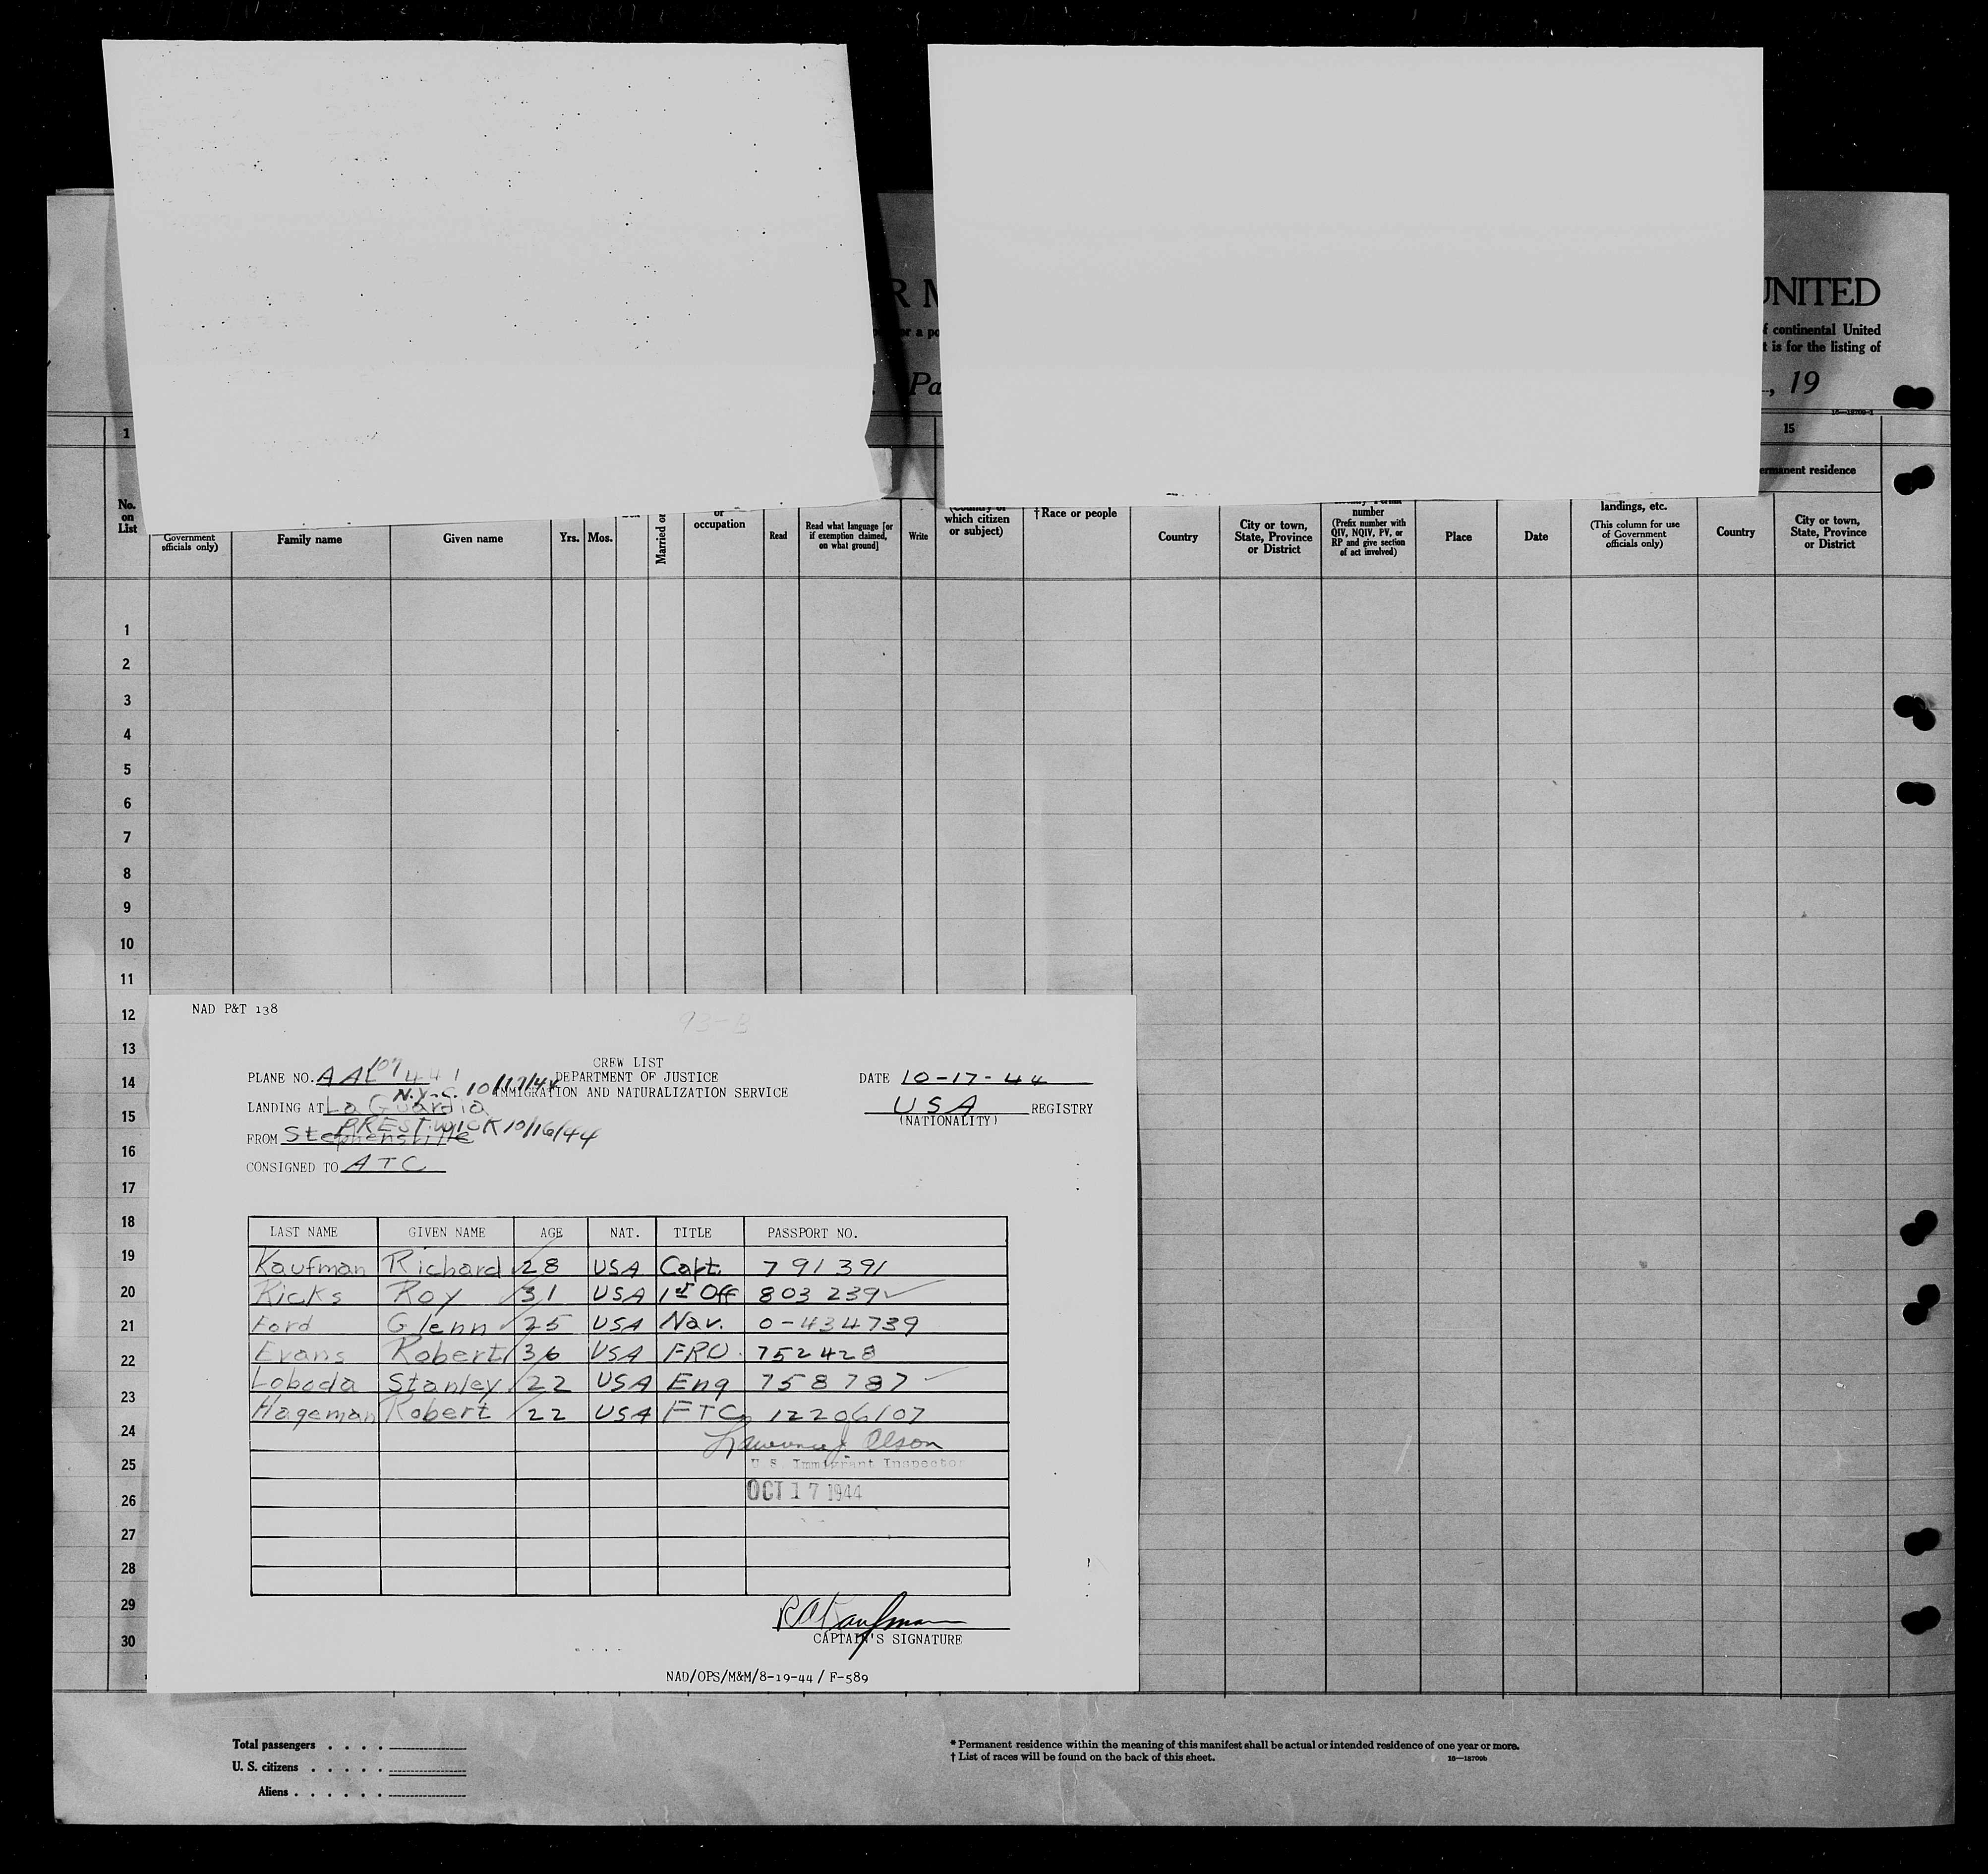 R M
UNITED
or a po
f continental United
t is for the listing of
Pa
, 19
16—18709-1
1
15
ermanent residence
No. on List
Government officials only)
Family name
Given name
Yrs.
Mos.
Married or
or occupation
Read
Read what language [or if exemption claimed, on what ground]
Write
which citizen or subject)
†Race or people
Country
City or town, State, Province or District
number (Prefix number with QIV, NQIV, PV, or RP and give section of act involved)
Place
Date
landings, etc. (This column for use of Government officials only)
Country
City or town, State, Province or District
1
2
3
4
5
6
7
8
9
10
11
12
13
14
15
16
17
18
19
20
21
22
23
24
25
26
27
28
29
30
NAD P&T 138
93-3
CREW LIST
DEPARTMENT OF JUSTICE
IMMIGRATION AND NATURALIZATION SERVICE
PLANE NO. AAL 107441
DATE 10-17-44
N.Y.C. 10/17/44
LANDING AT La Guardia
USA REGISTRY
(NATIONALITY)
PRESTWICK 10/16/44
FROM Stephensville
CONSIGNED TO ATC
LAST NAME GIVEN NAME AGE NAT. TITLE PASSPORT NO.
Kaufman Richard 28 USA Capt. 791391
Ricks Roy 31 USA 1st Off 803239
Ford Glenn 25 USA Nav. 0-434739
Evans Robert 36 USA FRO. 752428
Loboda Stanley 22 USA Eng 758787
Hageman Robert 22 USA FTC 12206107
Lawrence J. Olson
U. S. Immigrant Inspector
OCT 17 1944
RA Kaufman
CAPTAIN'S SIGNATURE
NAD/OPS/M&M/8-19-44 / F-589
Total passengers . . . .
U. S. citizens . . . . .
Aliens . . . . . .
* Permanent residence within the meaning of this manifest shall be actual or intended residence of one year or more.
† List of races will be found on the back of this sheet.
16—18709b